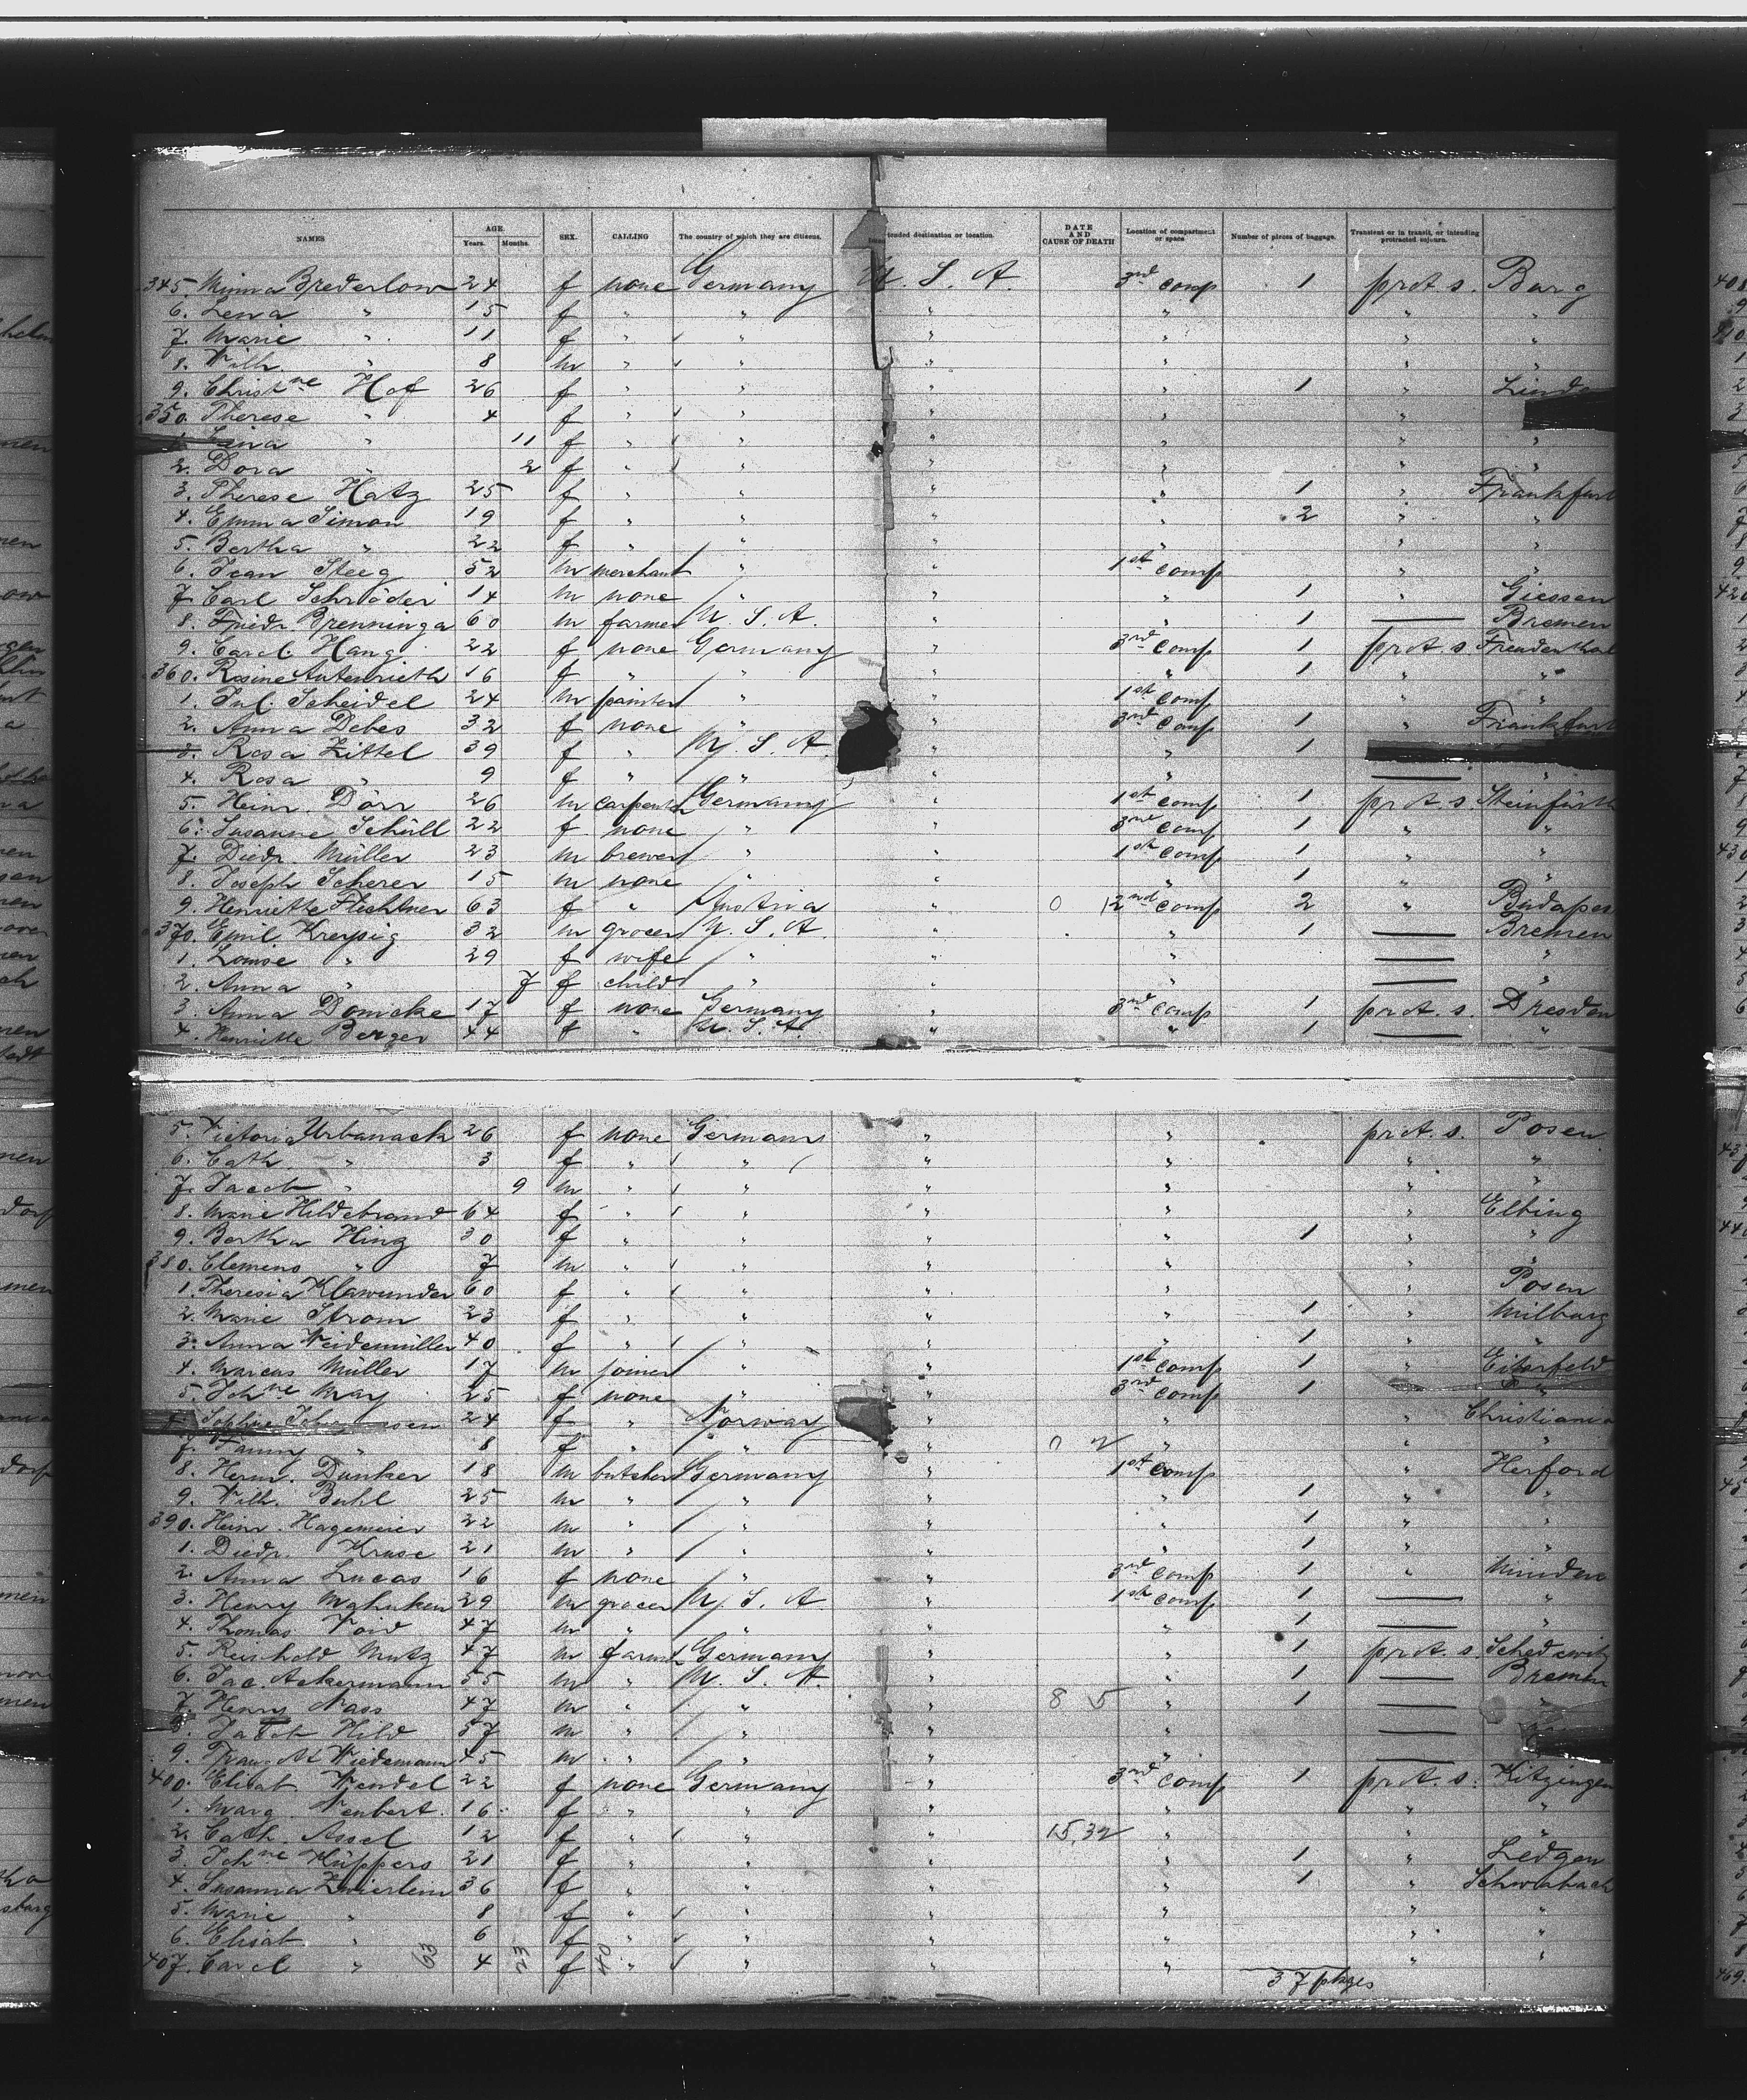 NAMES AGE Years. Months. SEX. CALLING The country of which they are citizens. Intended destination or location. DATE AND CAUSE OF DEATH Location of compartment or space Number of pieces of baggage. Transient or in transit, or intending protracted sojourn.
345. Minna Brederlow 24 f none Germany U. S. A. 3rd comp 1 prot. s. Barg
6. Lena " 15 f " " " " " "
7. Marie " 11 f " " " " " "
8. Wilh. " 8 m " " " " " "
9. Christne Hof 26 f " " " " 1 "
350. Therese " 4 f " " " " "
Lina " 11 f " " " " " "
2. Dora " 2 f " " " " " "
3. Therese Hatz 25 f " " " " 1 " Frankfurt
4. Emma Simon 19 f " " " " 2 " "
5. Bertha " 22 f " " " " " "
6. Jean Steeg 52 m merchant " " 1st comp " "
7. Carl Schröder 14 m none " " " 1 " Giessen
8. Friedr. Brenninga 60 m farmer U. S. A. " " 1 — Bremen
9. Carol. Hang 22 f none Germany " 3rd comp 1 prot. s. Freudenthal
360. Rosine Autenrieth 16 f " " " " 1 " "
1. Jul. Scheidel 24 m painter " " 1st comp " "
2. Anna Debes 32 f none " " 3rd comp 1 " Frankfurt
3. Rosa Zittel 39 f " U. S. A. " " 1
4. Rosa " 9 f " " " " — "
5. Heinr. Dörr 26 m carpenter Germany " 1st comp 1 prot. s. Steinfürth
6. Susanne Schüll 22 f none " " 3rd comp 1 " "
7. Diedr. Müller 23 m brewer " " 1st comp 1 " "
8. Joseph Scherer 15 m none " " " 1 " "
9. Henriette Flechtner 63 f " Austria " 0 12nd comp 2 " Budapes
370. Emil Krepsig 32 m grocer U. S. A. " " 1 — Bremen
1. Louise " 29 f wife " " " — "
2. Anna " 7 f child " " " — "
3. Anna Domcke 17 f none Germany " 3rd comp 1 prot. s. Dresden
4. Henriette Berger 44 f " U. S. A. " " 1 — "
5. Victoria Urbanack 26 f none Germany " " prot. s. Posen
6. Cath. " 3 f " " " " " "
7. Jacob " 9 m " " " " " "
8. Marie Hildebrand 64 f " " " " " Elbing
9. Bertha Hinz 30 f " " " " 1 " "
380. Clemens " 7 m " " " " " "
1. Theresia Klawunder 60 f " " " " " Posen
2. Marie Strom 23 f " " " " 1 " Milburg
3. Anna Weidemüller 40 f " " " " 1 " "
4. Marcus Müller 17 m joiner " " 1st comp 1 " Eiterfeld
5. Johne May 25 f none " " 3rd comp 1 " "
Sophie 24 f " Norway " " " Christiana
7. Fanny " 8 f " " " " " "
8. Herm. Dunker 18 m butcher Germany " 1st comp " Herford
9. Wilh. Buhl 25 m " " " " 1 " "
390. Heinr. Hagemeier 22 m " " " " 1 " "
1. Diedr. Kruse 21 m " " " " 1 " "
2. Anna Lucas 16 f none " " 3rd comp 1 " Minden
3. Henry Mahnken 29 m grocer U. S. A. " 1st comp 1 — "
4. Thomas Void 47 m " " " " 1 — "
5. Reinhold Mutz 47 m farmer Germany " " 1 prot. s. Schedewitz
6. Jac. Ackermann 55 m " U. S. A. " " 1 — Bremen
7. Henry Nass 47 m " " " 8 5 " 1 — "
8. Jacob Hild 57 m " " " " —
9. Traugott Wiedemann 45 m " " " " —
400. Elisab. Wendel 22 f none Germany " 3rd comp 1 prot. s. Kitzingen
1. Marg. Wenbert. 16 f " " " " " "
2. Cath. Assel 12 f " " " 15,32 " " "
3. Johne Küppers 21 f " " " " 1 " Ledgen
4. Susanna Zwierlein 36 f " " " " 1 " Schwabach
5. Marie " 8 f " " " " " "
6. Elisab. " 6 f " " " " " "
407. Carol. " 63 4 23 f 40 " " " " " "
37 pkges